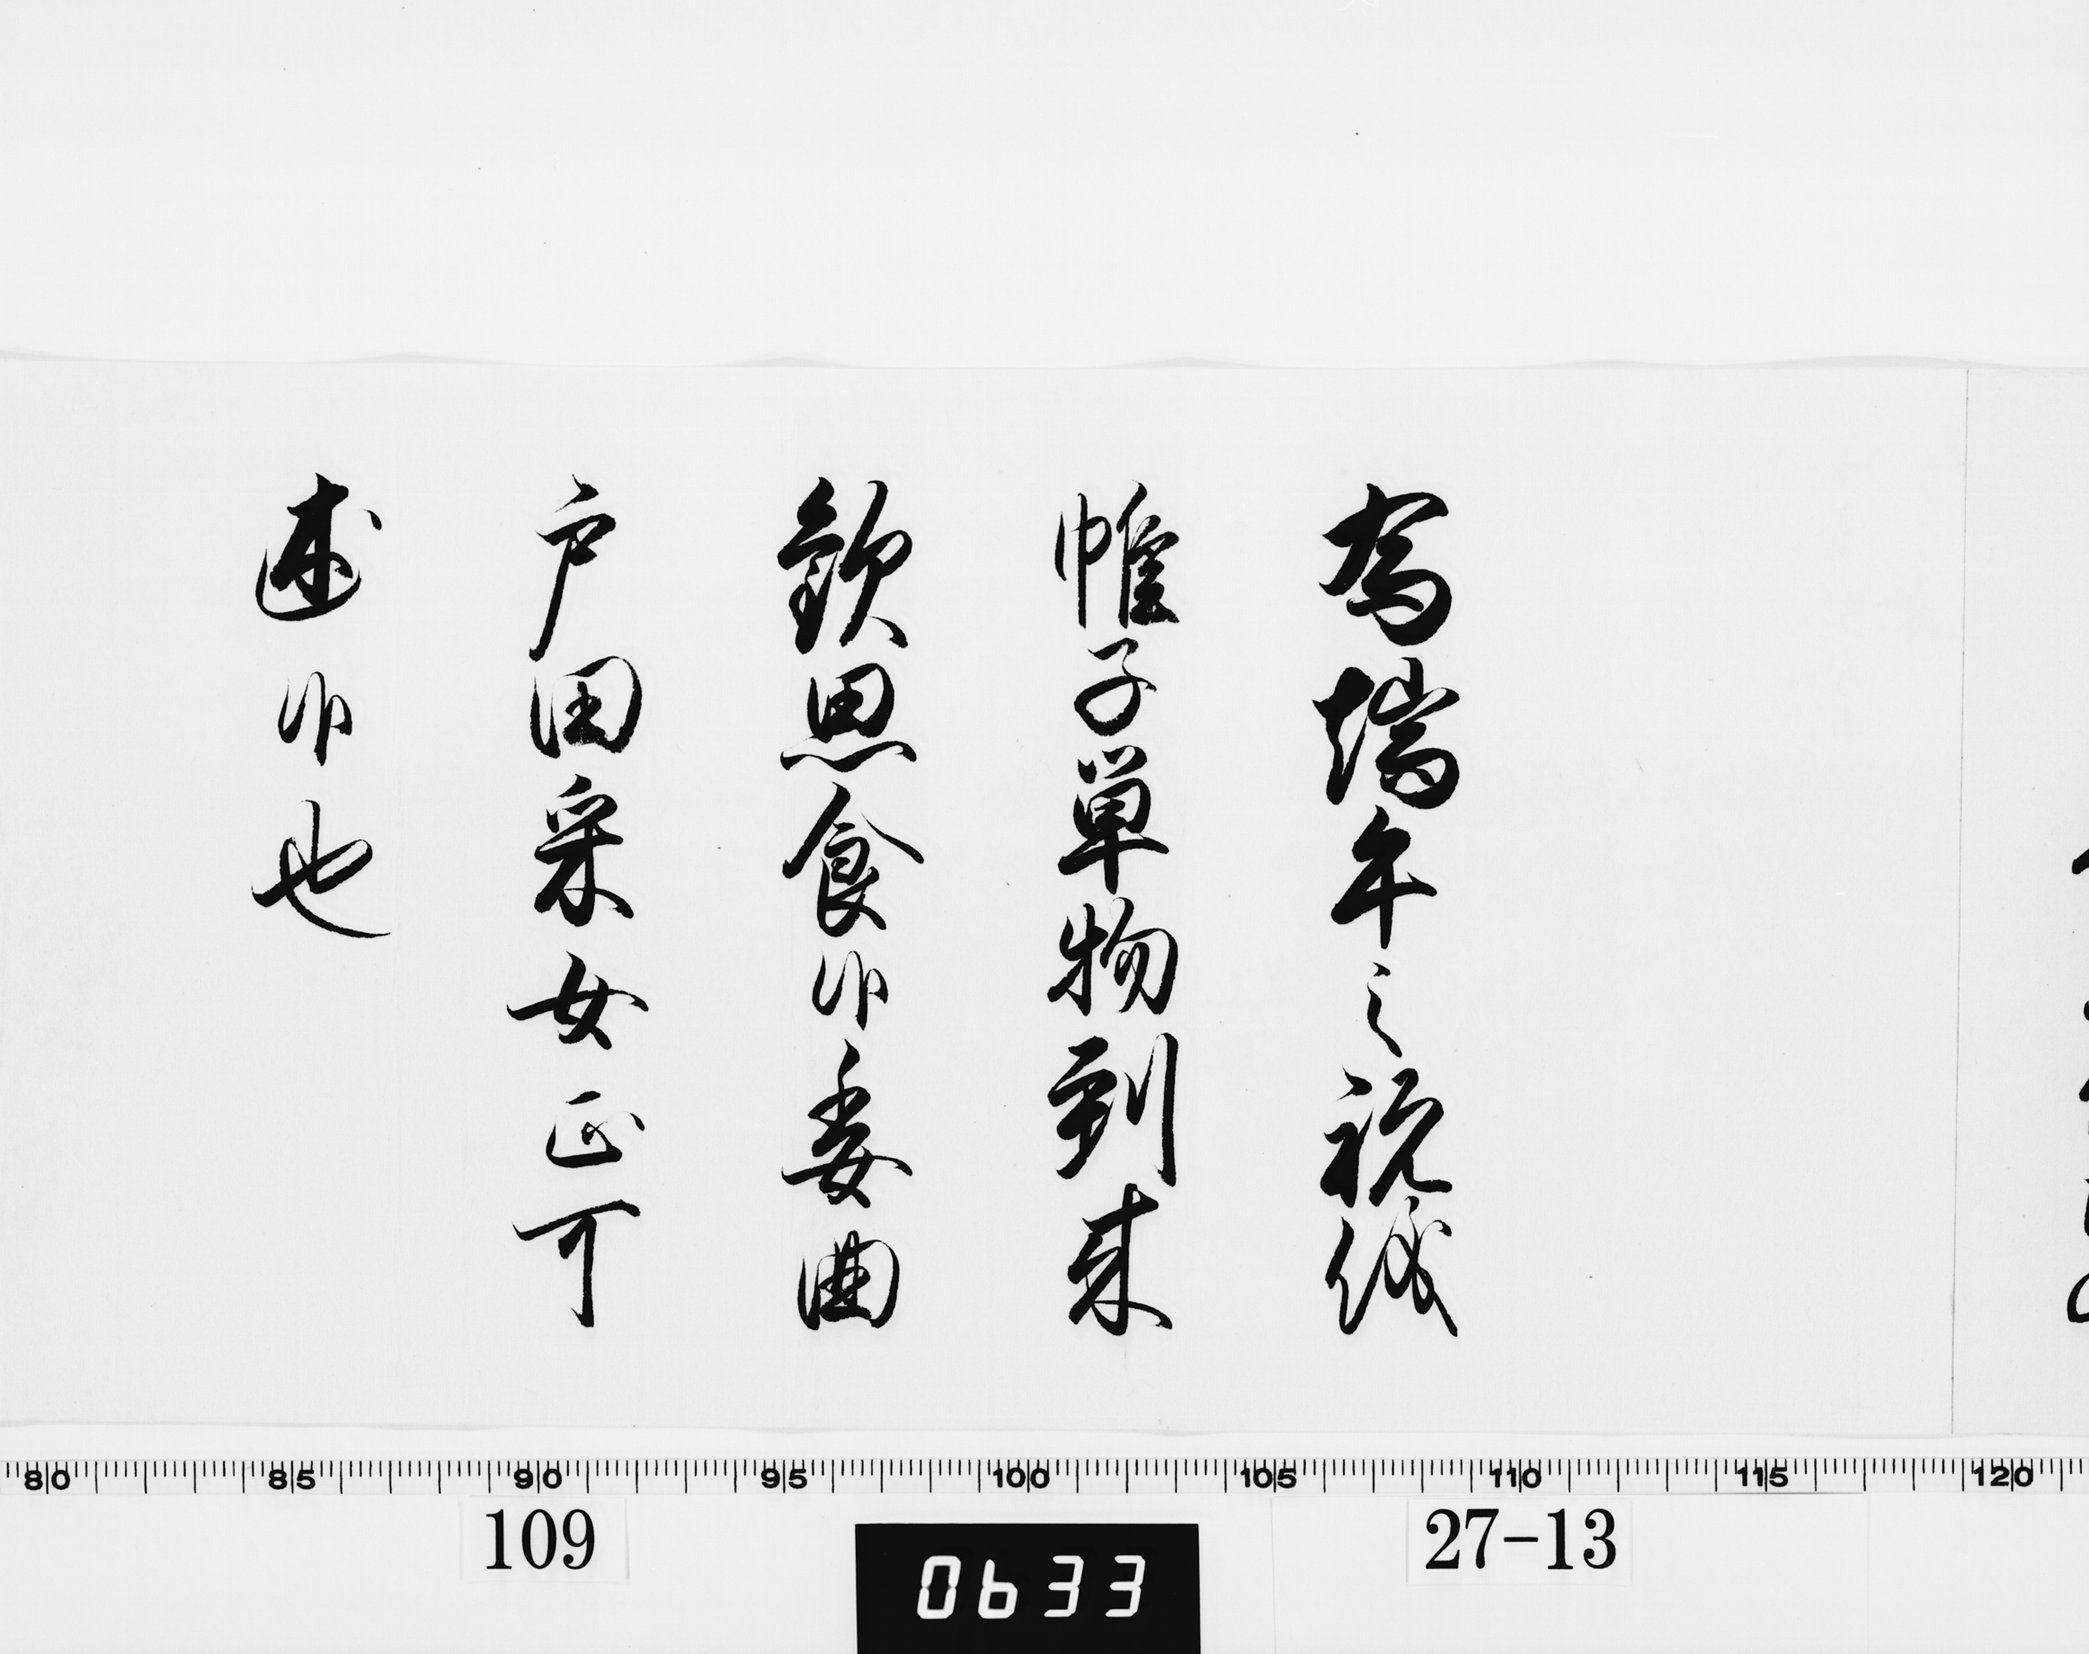 為端午之祝儀
帷子単物到来
歓思食候委曲
戸田采女正可
述候也
80 85 90 95 100 105 110 115 120
109
0633
27-13